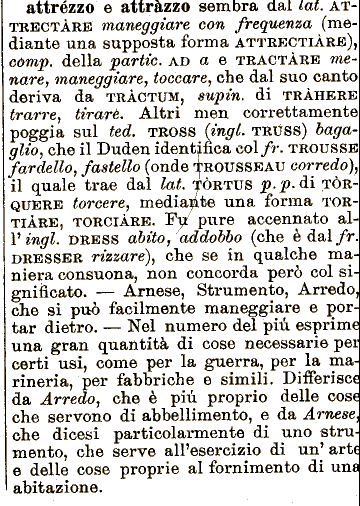 attrézzo e attràzzo sembra dal lat. AT-
TRECTÀRE maneggiare con frequenza (me-
diante una supposta forma ATTRECTIÀRE),
comp. della partic. AD a e TRACTÀRE me-
nare, maneggiare, toccare, che dal suo canto
deriva da TRÀCTUM, supin. di TRÀHERE
trarre, tirare. Altri men correttamente
poggia sul ted. TROSS (ingl. TRUSS) baga-
glio, che il Duden identifica col fr. TROUSSE
fardello, fastello (onde TROUSSEAU corredo),
il quale trae dal lat. TÒRTUS p. p. di TÒR-
QUERE torcere, mediante una forma TOR-
TIÀRE, TORCIÀRE. Fu pure accennato al-
l' ingl. DRESS abito, addobbo (che è dal fr.
DRESSER rizzare), che se in qualche ma-
niera consuona, non concorda però col si-
gnificato. — Arnese, Strumento, Arredo,
che si può facilmente maneggiare e por-
tar dietro. — Nel numero del piú esprime
una gran quantità di cose necessarie per
certi usi, come per la guerra, per la ma-
rineria, per fabbriche e simili. Differisce
da Arredo, che è piú proprio delle cose
che servono di abbellimento, e da Arnese,
che dicesi particolarmente di uno stru-
mento, che serve all'esercizio di un' arte
e delle cose proprie al fornimento di una
abitazione.